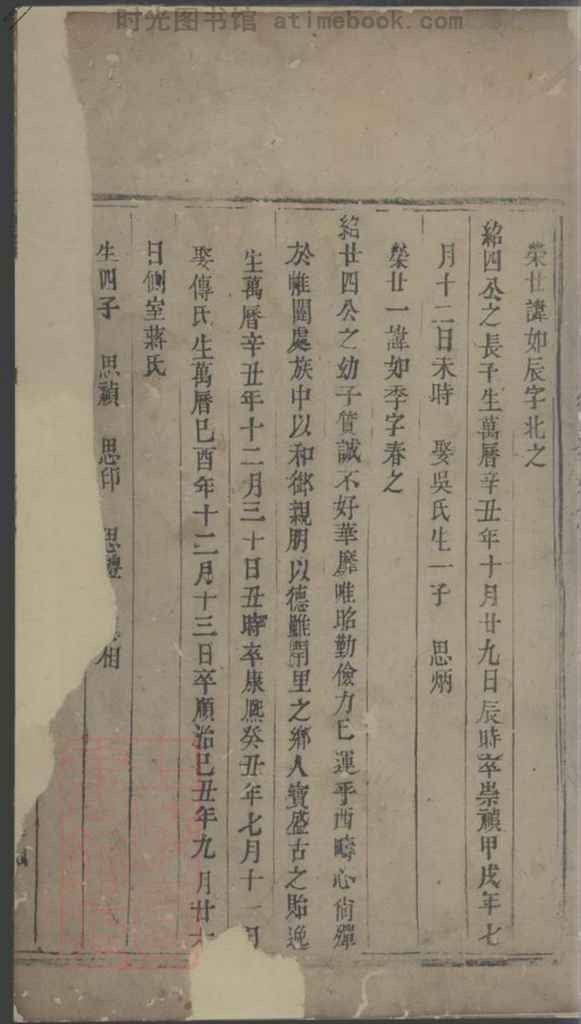 时光图书馆 atimebook.com
榮廿諱如辰字北之
紹四公之長子生萬曆辛丑年十月廿九日辰時卒崇禎甲戌年七
月十二日未時 娶吳氏生一子 思炳
榮廿一諱如季字春之
紹廿四公之幼子質誠不好華靡唯昭勤儉力已運乎酉疇心尚殫
於帷闥處族中以和御親朋以德雖閈里之鄉人實盛古之貽逸
生萬曆辛丑年十二月三十日丑時卒康熙癸丑年七月十一月
娶傳氏生萬曆已酉年十二月十三日卒順治已丑年九月廿六
日側室蔣氏
生四子 思禎 思印 思禮 相